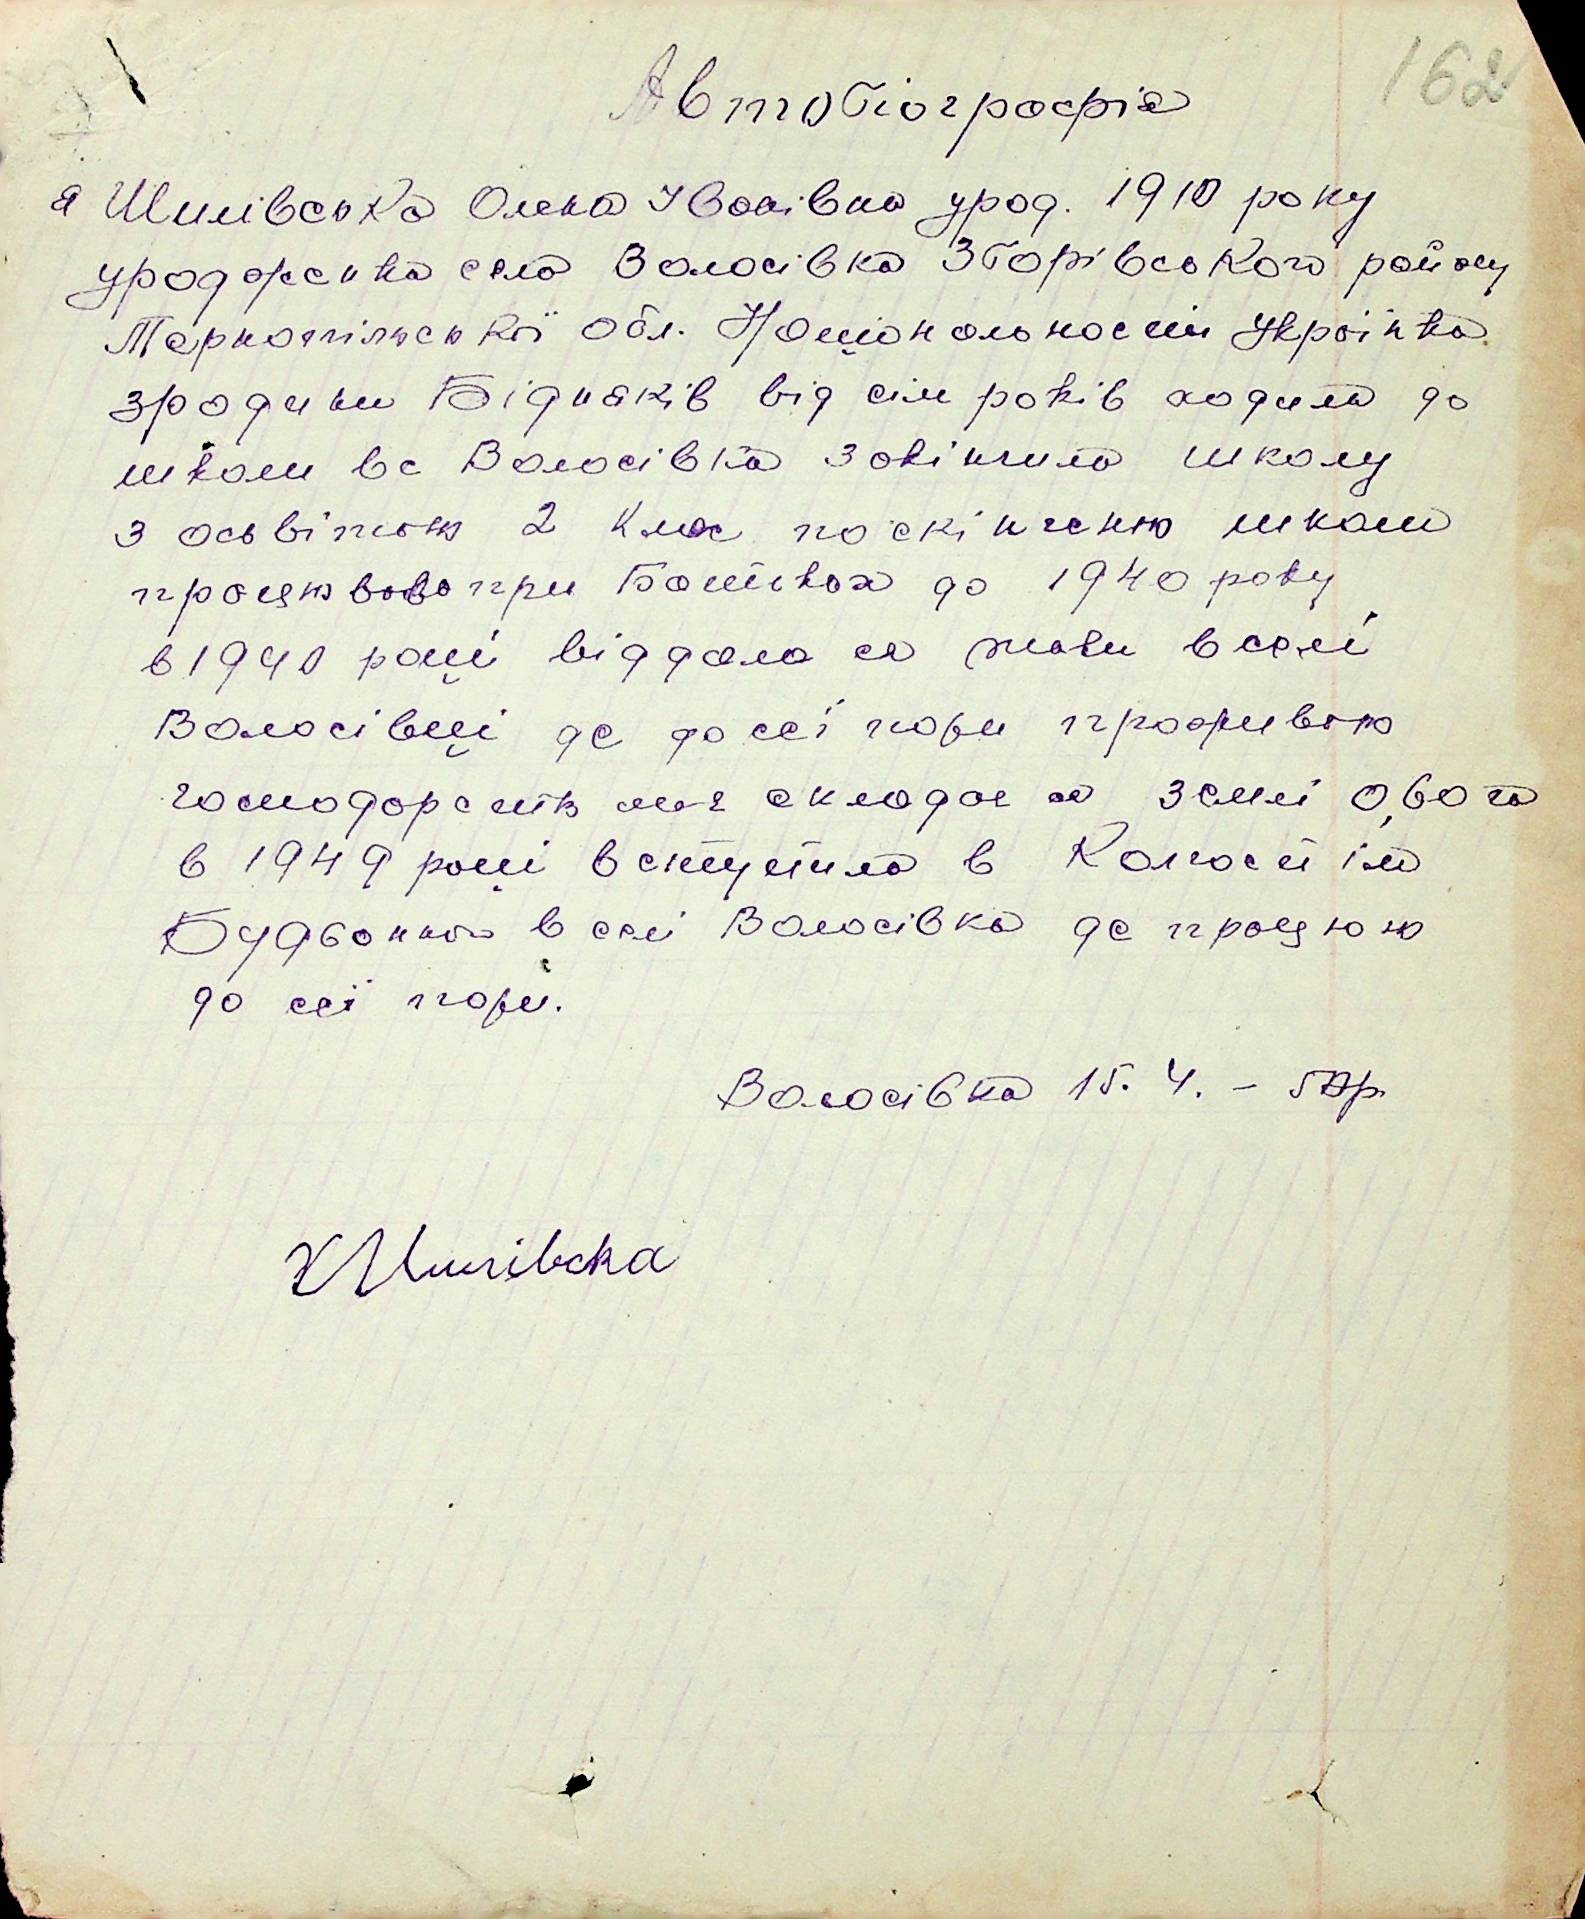 162
Автобіографія
я Шилівська Олена Іванівна урод. 1910 року
уродженка села Волосівка Зборівського району
Тернопільської обл. Національности Українка.
зродини Бідняків від сім років ходила до
школи вс Волосівка закінчила школу
з осьвітою 2 клас по скінченю школи
працювала при Батьках до 1940 року
в 1940 році віддала ся жити в селі
Волосівці де до сеї пори проживаю
господарств моє складає ся землі 0,60 га
в 1949 році вступила в Колгосп ім
Будьонного в селі Волосівка де працюю
до сеї пори.
Волосівка 15. 4. – 50р.
Шилівска